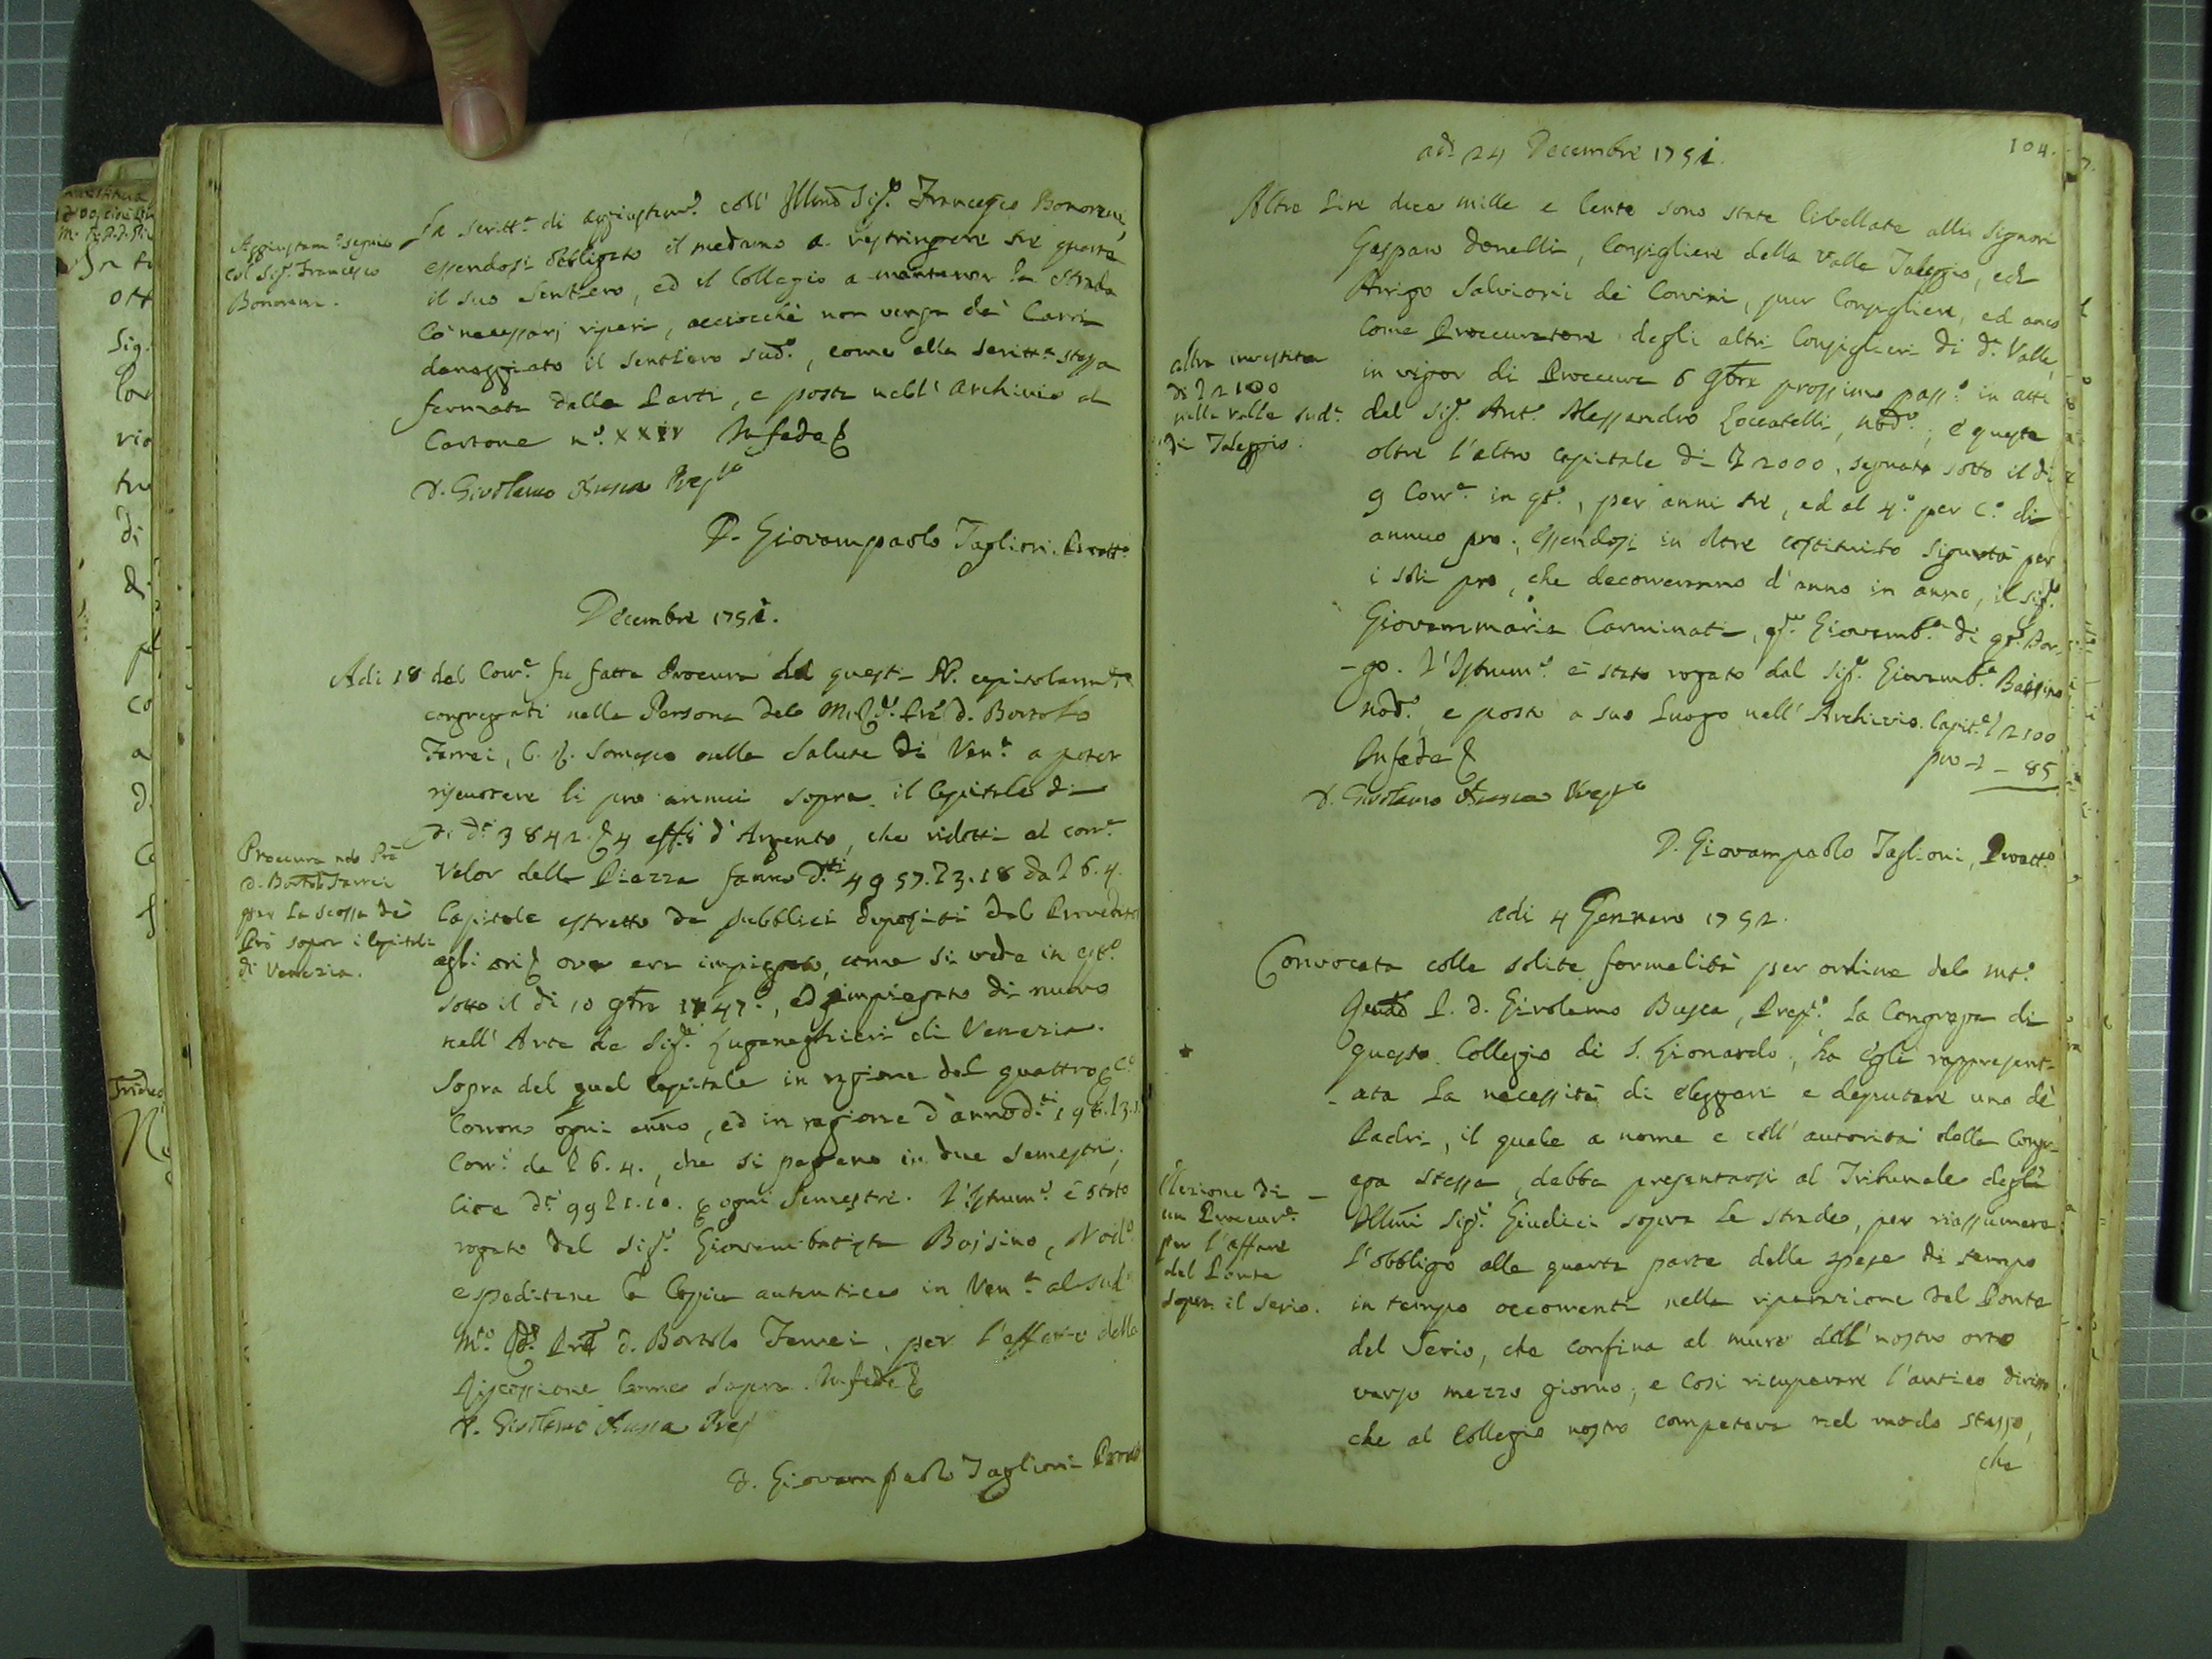 Aggiustam.º seguito
col Sig.r Francesco
Bonoreni.
La scritt.ª di aggiustam.º coll' Illmo Sig.r Francesco Bonoreni,
essendosi obbligato il medemo a restringere tre quarte
il suo Sentiero, ed il Collegio a mantener la strada
Co' necessarj ripari, acciocchè non venga dà Carri
danneggiato il Sentiero sud.º, come alla scritt.ª stessa
fermata dalle Parti, e posta nell' Archivio al
Cartone n.º XXIV In fede &
D. Girolamo Rusca Prep.to
D. Giovampaolo Taglioni Proatt.º
Decembre 1751.
Adi 18 del Corr.e fu fatta Procura da questi PP. capitolarm.te
congregati nella Persona del M.R.do Pre d. Bortolo
Ferrei, C. R. Somasco nella Salute di Ven.ª a poter
riscuotere li pro annui sopra il Capitale di
di D.ti 3842 & 4 eff.i d'Argento, che ridotti al corr.e
Valor della Piazza fanno D.ti 4957.L3.18 da L6.4.
Procura nel Pre
d. Bortolo Ferrei
per la scossa de
Prò sopra i Capitali
di Venezia.
Capitale estratto da pubblici depositi dal Proveditor
agli ori & ove era impiegato, come si vede in qto
sotto il di 10 9bre 1747., ed impiegato di nuovo
nell' Arte de Sig.ri Luganegheri di Venezia.
Sopra del qual Capitale in ragione del quattro per C.º
Corrono ogni anno, ed in ragione d'anno d.ti 198.L3.
Corr.i da L6.4., che si pagano in due Semestri,
cioè D.ti 99 L1.10. per ogni Semestre. L'Istrum.º è stato
rogato dal Sig.r Giovambatista Bassino, Nod.º
espeditane la Copia autentica in Ven.ª al sud.º
M.to R.do Pre d. Bortolo Ferrei, per l'effetto della
Riscossione Come Sopra. In fede &
D. Girolamo Rusca Prep.
D. Giovampaolo Taglioni Proatt.
104.
adi 24 Decembre 1751.
Altre Lire due mille e Cento sono state livellate alli Signori
Gasparo Donelli, Consigliere della Valle Taleggio, ed
Arrigo Salvioni dei Corvini, pur Consigliere, ed anco
Come Proccuratore degli altri Consiglieri di d.ª Valle,
altra investita
di L2100
nella Valle sud.ª
di Taleggio.
in vigor di Proccura 6 9bre prossimo pass.º in atti
del Sig.r Ant.º Alessandro Loccatelli, nod.º, e questa
oltre l'altro Capitale di L 2000, segnato sotto il di
9 Corr.e in qto, per anni tre, ed al 4.º per C.º di
annuo pro, essendosi in oltre costituito Sigurtà per
i soli pro, che decorreranno d'anno in anno, il Sig.r
Giovammaria Carminati, q.m Giovamb.ª di qto Bor-
-go. L'Istrum.º è stato rogato dal Sig.r Giovamb.ª Bassino
nod.º, e posto a suo luogo nell' Archivio. Capit.e L2100
In fede & pro L 85
D. Girolamo Rusca Prep.to
D. Giovampaolo Taglioni, Proatt.º
adi 4 Gennaro 1752.
Convocata colle solite formalità per ordine del mt.º
R.do P. D. Girolamo Rusca, Prep.to, la Congrega di
questo Collegio di S. Lionardo, ha egli rappresent-
-ata la necessità di eleggere e deputare uno dè
Padri, il quale a nome e coll' autorità della Congr-
Elezione di
un Proccur.e
per l'affare
del Ponte
sopra il Serio.
ega stessa, debba presentarsi al Tribunale degli
Illmi Sig.ri Giudici sopra le strade, per riassumere
l'obbligo alla quarta parte delle spese di tempo
in tempo occorrenti nella riparazione del Ponte
del Serio, che confina al muro dell' nostro orto
verso mezzo giorno, e Così ricuperare l'antico diritto
che al Collegio nostro competeva nel modo stesso,
che